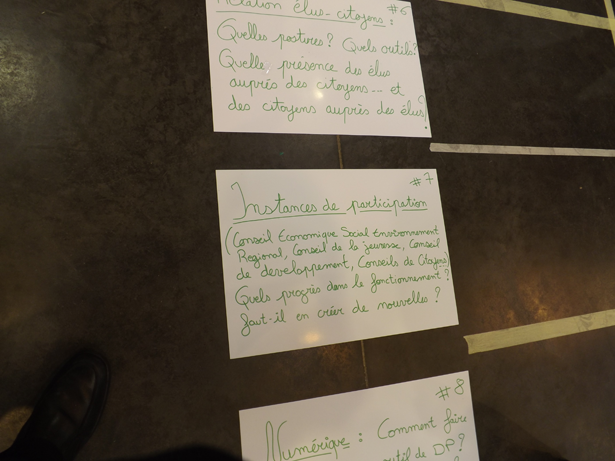 Relation élus-citoyens : #6
Quelles postures? Quels outils?
Quelle présence des élus
auprès des citoyens... et
des citoyens auprès des élus?
#7
Instances de participation
(Conseil Economique Social Environnement
Regional, Conseil de la jeunesse, Conseil
de developpement, Conseils de Citoyens)
Quels progrès dans le fonctionnement?
faut-il en créer de nouvelles?
#8
Numérique : Comment faire
outil de DP?